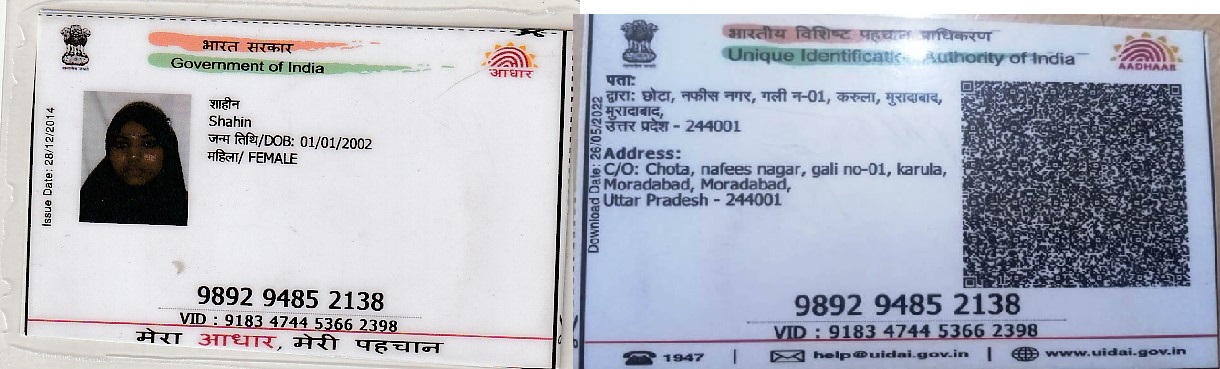 भारत सरकार
Government of India
आधार
Issue Date: 28/12/2014
शाहीन
Shahin
जन्म तिथि/DOB: 01/01/2002
महिला/ FEMALE
9892 9485 2138
VID : 9183 4744 5366 2398
मेरा आधार, मेरी पहचान
भारतीय विशिष्ट पहचान प्राधिकरण
Unique Identification Authority of India
AADHAAR
Download Date: 26/05/2022
पता:
द्वारा: छोटा, नफीस नगर, गली न-01, करुला, मुरादाबाद,
मुरादाबाद,
उत्तर प्रदेश - 244001
Address:
C/O: Chota, nafees nagar, gali no-01, karula,
Moradabad, Moradabad,
Uttar Pradesh - 244001
9892 9485 2138
VID : 9183 4744 5366 2398
1947 | help@uidai.gov.in | www.uidai.gov.in